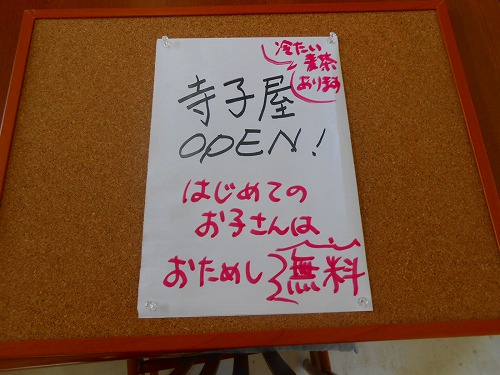 冷たい
麦茶
あります
寺子屋
OPEN!
はじめての
お子さんは
おためし無料